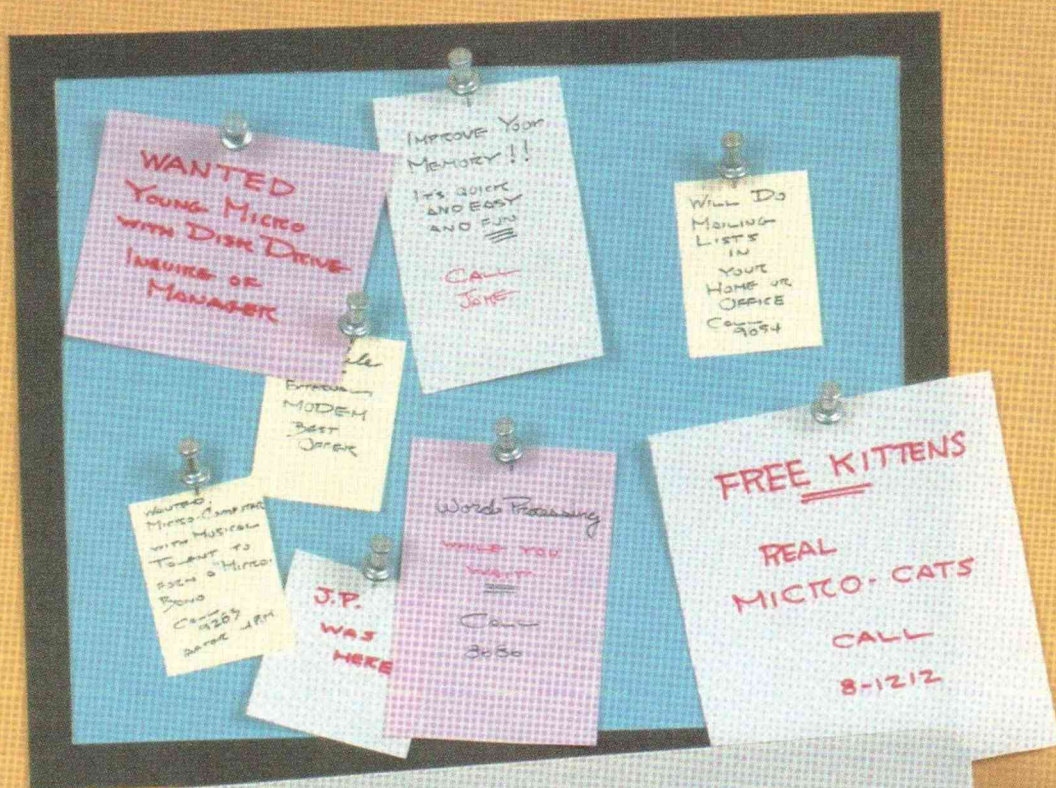 WANTED
YOUNG MICRO
WITH DISK DRIVE
INQUIRE OF
MANAGER
IMPROVE YOUR
MEMORY!!
IT'S QUICK
AND EASY
AND FUN
CALL
JAKE
WILL DO
MAILING
LISTS
IN
YOUR
HOME OR
OFFICE
CALL
9054
MODEM
BEST
OFFER
WANTED,
MICRO-COMPUTER
WITH MUSICAL
TALENT TO
FORM A "MICRO-
BAND
CALL
9263
4 P.M.
J.P.
WAS
HERE
Words Processing
WHILE YOU
WAIT
CALL
3080
FREE KITTENS
REAL
MICRO-CATS
CALL
8-1212